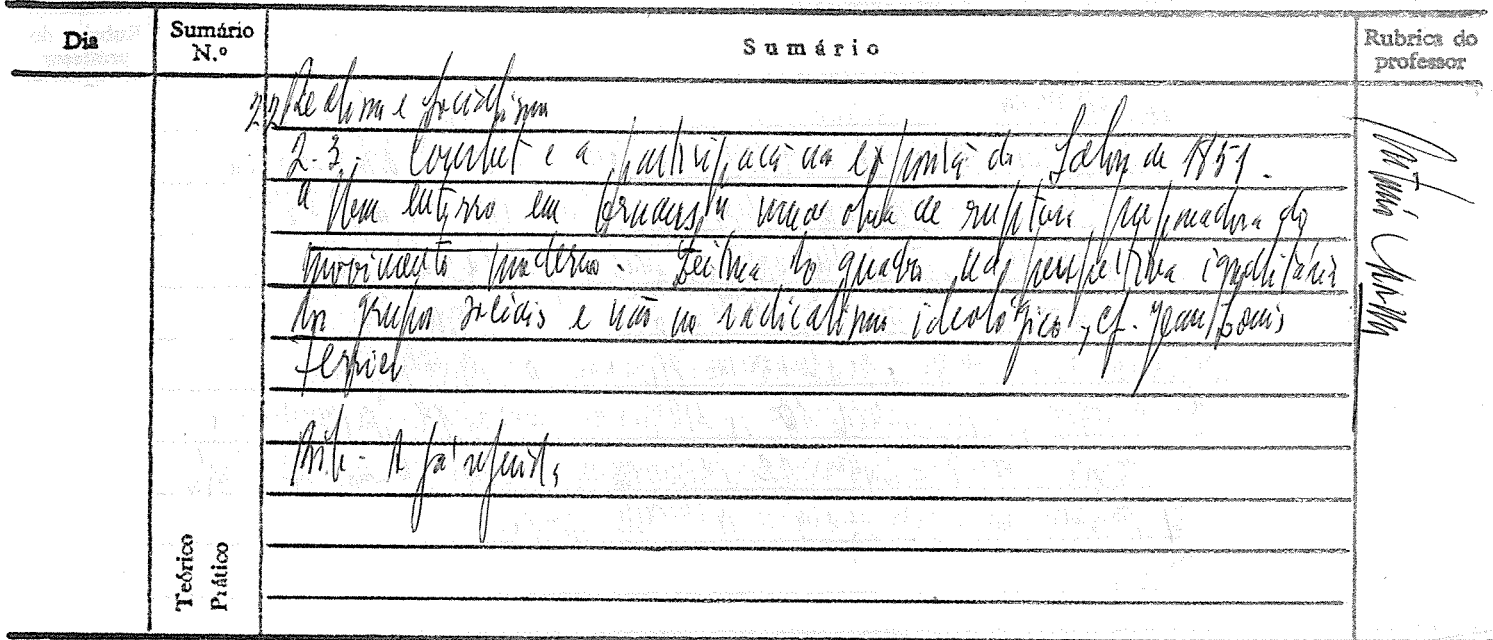 Dia
Sumário N.º
Sumário
Rubrica do professor
2.2 Realismo e Socialismo
2.3. Courbet e a participação na exposição do Salon de 1851.
o "Um enterro em Ornans" uma obra de ruptura do
movimento moderno. Leitura do quadro perspectiva igualitária
dos grupos sociais e não no radicalismo ideológico, cf. Jean Louis
Ferrier
Bib - A já referida
Teórico
Prático